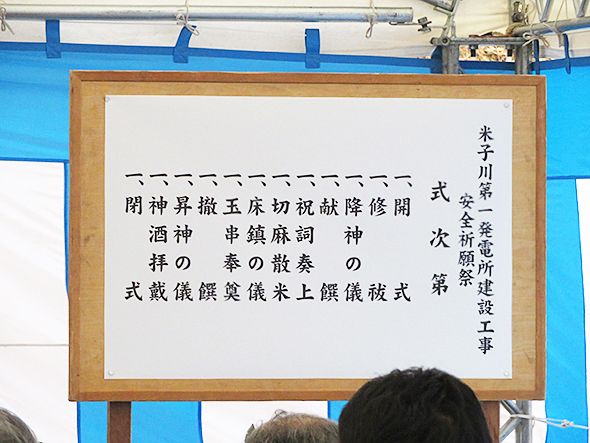 米子川第一発電所建設工事
安全祈願祭
式次第
一、開式
一、修祓
一、降神の儀
一、献饌
一、祝詞奏上
一、切麻散米
一、床鎮の儀
一、玉串奉奠
一、撤饌
一、昇神の儀
一、神酒拝戴
一、閉式